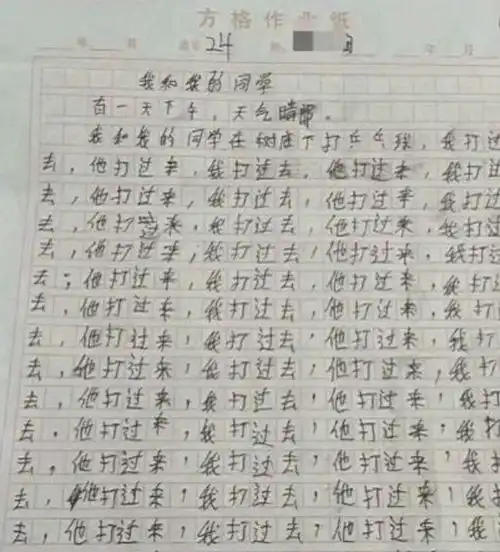 方格作业纸
24
我和我的同学
有一天下午，天气晴朗。
我和我的同学在树底下打乒乓球，我打过
去，他打过来，我打过去，他打过来，我打过
去，他打过来，我打过去，他打过来，我打过
去，他打过来，我打过去，他打过来，我打过
去，他打过来，我打过去，他打过来，我打过
去，他打过来，我打过去，他打过来，我打过
去，他打过来，我打过去，他打过来，我打
去，他打过来，我打过去，他打过来，我打
去，他打过来，我打过去，他打过来，我打
去，他打过来，我打过去，他打过来，我打
去，他打过来，我打过去，他打过来，我打
去，他打过来，我打过去，他打过来，我
去，他打过来，我打过去，他打过来，我
去，他打过来，我打过去，他打过来，我